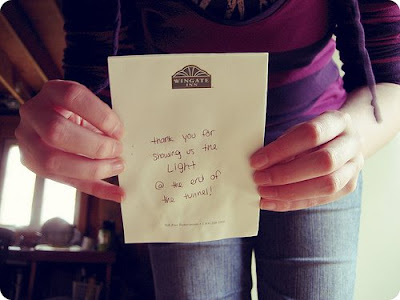 WINGATE
INN
thank you for
showing us the
Light
@ the end of
the tunnel!